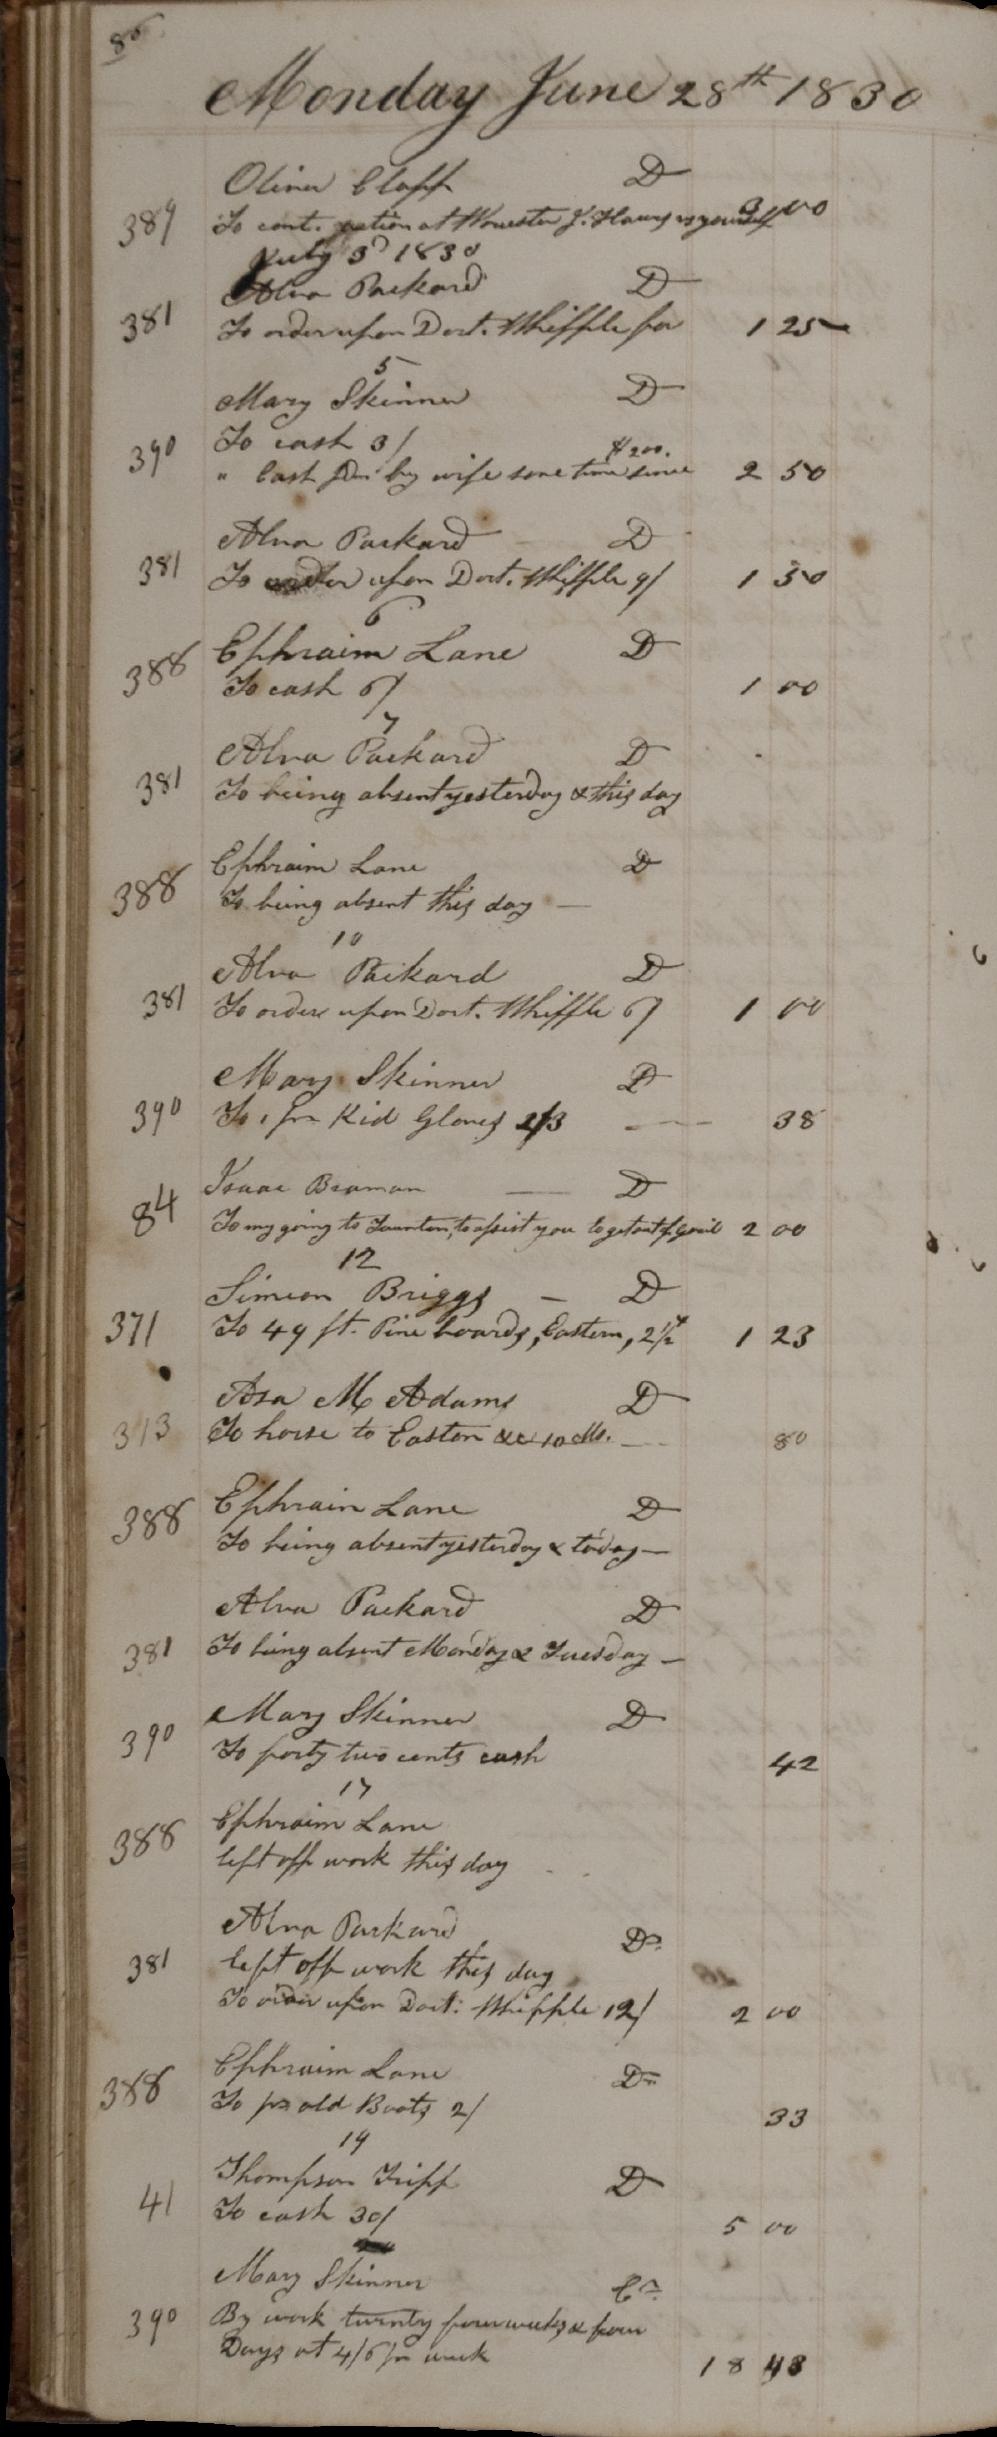 86
Monday June 28th 1830
Oliver Clapp D
389 To cont. action at Worcester J. Hawes vs yourself 3 00
July 3d 1830
Alva Packard D
381 To order upon Doct. Whipple for 1 25
5
Mary Skinner D
390 To cash 3/
" Cash by wife some time since $2.00. 2 50
Alva Packard D
381 To order upon Doct. Whipple 9/ 1 50
6
388 Ephraim Lane D
To cash 6/ 1 00
7
Alva Packard D
381 To being absent yesterday & this day
Ephraim Lane D
388 To being absent this day —
10
Alva Packard D
381 To order upon Doct. Whipple 6/ 1 00
Mary Skinner D
390 To 1 pr Kid Gloves 2/3 — 38
Isaac Braman — D
84 To my going to Taunton, to assist you to get out of gaol 2 00
12
Simeon Briggs — D
371 To 49 ft. Pine boards, Eastern, 2½ 1 23
Asa M Adams D
313 To horse to Easton &c 10 Ms. — 80
Ephraim Lane D
388 To being absent yesterday & today —
Alva Packard D
381 To being absent Monday & Tuesday —
Mary Skinner D
390 To forty two cents cash 42
17
Ephraim Lane
388 left off work this day
Alva Packard Dr
381 left off work this day
To order upon Doct. Whipple 12/ 2 00
Ephraim Lane Dr
388 To pr old Boots 2/ 33
19
Thompson Tripp D
41 To cash 30/ 5 00
Mary Skinner Cr
390 By work twenty four weeks & four
Days at 4/6 pr week 18 43